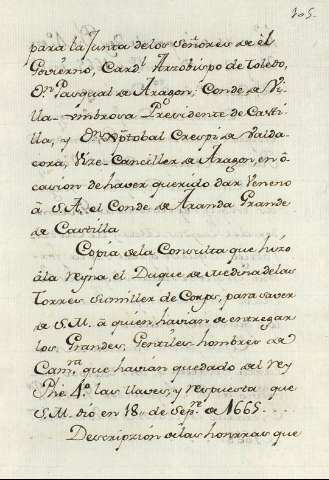 105.
para la Junta de los Señores de èl
Govierno, Card.l Arzobispo de Toledo,
Dn. Pasqual de Aragon; Conde de Vi-
lla-umbrosa Presidente de Casti-
lla, y Dn. Xptobal Crespi de Valda-
cora, Vize-Canciller de Aragon, en ò-
casion de haver querido dar Veneno
à S.A. el Conde de Aranda Grande
de Castilla
Copia de la Consulta que hizo
à la Reyna el Duque de Medina de las
Torres Sumiller de Corps, para saver
de S.M. à quién havian de entregar
los Grandes, Gentiles hombres de
Cam.ra que havian quedado del Rey
Phe. 4.º las llaves, y respuesta que
S.M. dió en 18 de Sep.re de 1665....
Descripzion de las honrras que